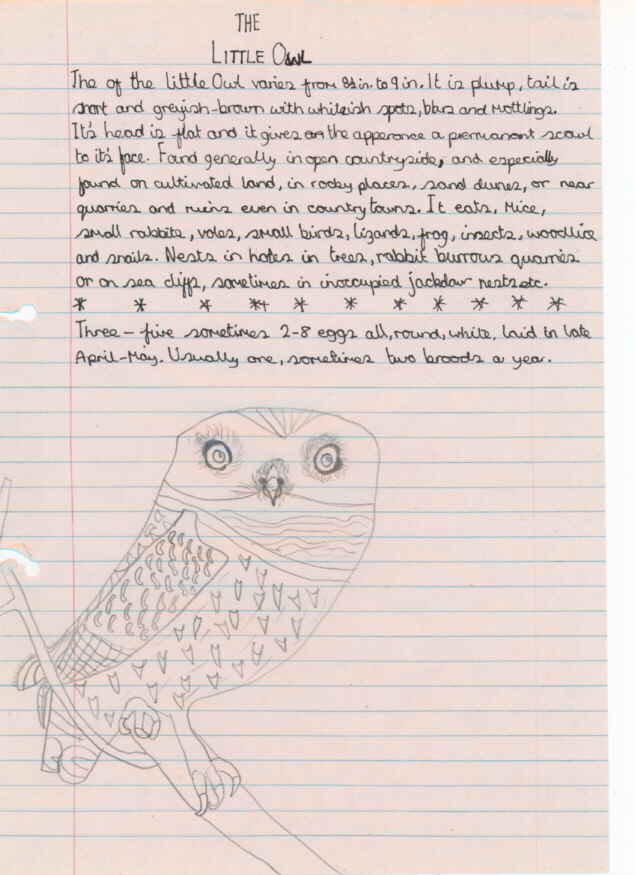 THE
LITTLE OWL
The of the little Owl varies from 8½in. to 9 in. It is plump, tail is
short and greyish-brown with whiteish spots, blars and Mottlings.
It's head is flat and it gives on the apperance a premanant scowl
to it's face. Found generally in open countryside, and especially
found on cultivated land, in rocky places, sand dunes, or near
quarries and ruins even in country towns. It eats, Mice,
small rabbits, voles, small birds, lizards, frog, insects, woodlice
and snails. Nests in holes in trees, rabbit burrous quarries
or on sea cliffs, sometimes in inoccupied jackdaw nests etc.
* * * ** * * * * * * *
Three - five sometimes 2-8 eggs all, round, white, laid in late
April-May. Usually one, sometimes two broods a year.